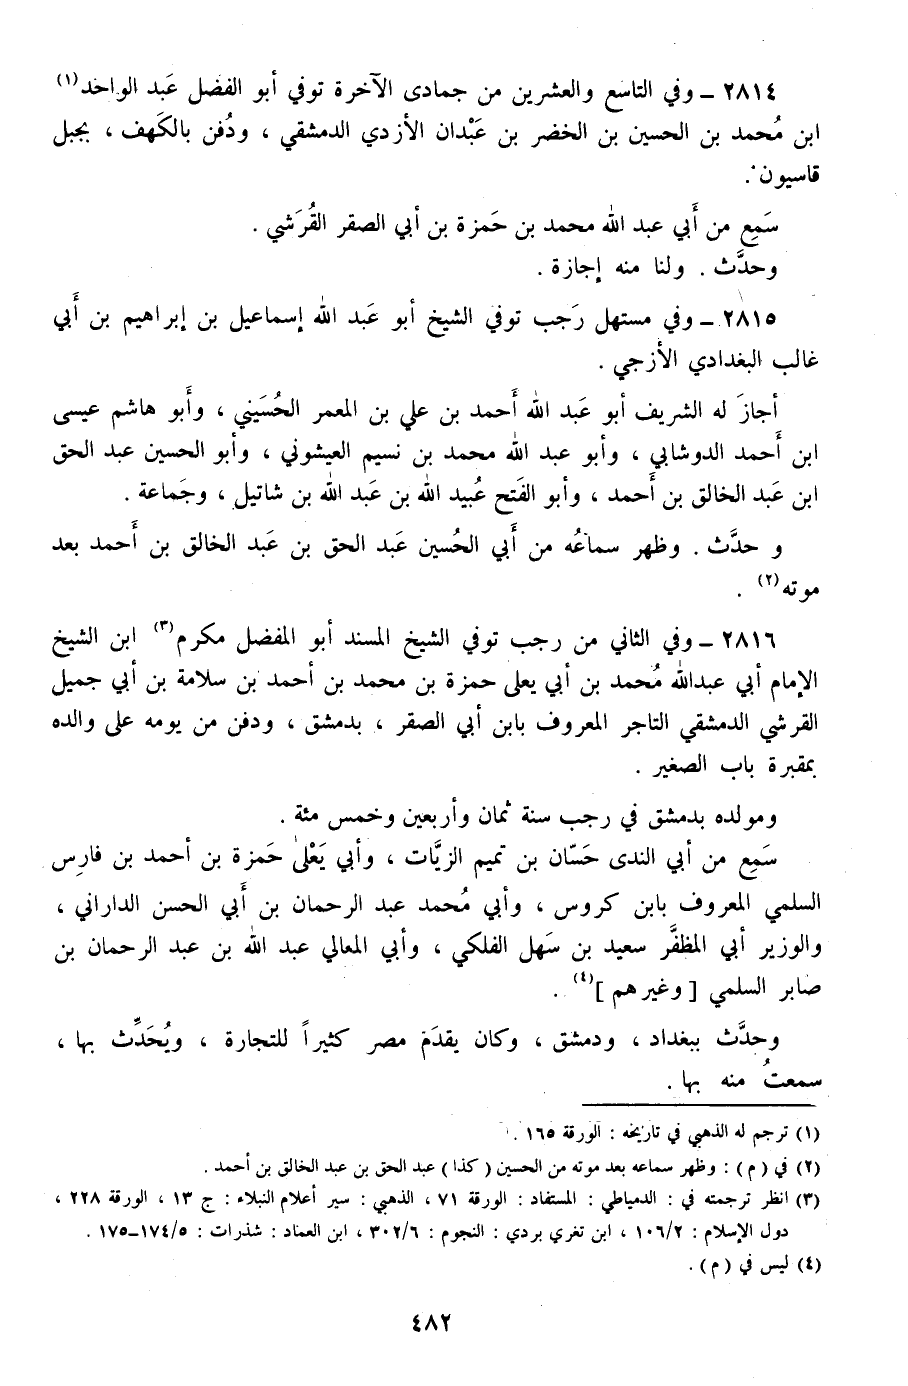 ٢٨١٤ ــ وفي التاسع والعشرين من جمادى الآخرة توفي أبو الفضل عَبد الواحد(١)
ابن مُحمد بن الحسين بن الخضر بن عَبْدان الأزدي الدمشقي ، ودُفن بالكَهف ، بجبل
قاسيون .
سَمِع من أَبي عبد الله محمد بن حَمزة بن أبي الصقر القُرَشي .
وحدَّث . ولنا منه إجازة .
٢٨١٥ ــ وفي مستهل رَجب توفي الشيخ أبو عَبد الله إسماعيل بن إبراهيم بن أَبي
غالب البغدادي الأزجي .
أجازَ له الشريف أبو عَبد الله أَحمد بن علي بن المعمر الحُسَيني ، وأَبو هاشم عيسى
ابن أَحمد الدوشابي ، وأبو عبد الله محمد بن نسيم العيشوني ، وأبو الحسين عبد الحق
ابن عَبد الخالق بن أَحمد ، وأبو الفَتح عُبيد الله بن عَبد الله بن شاتيل ، وجَماعة .
و حدَّث . وظهر سماعُه من أَبي الحُسين عَبد الحق بن عَبد الخالق بن أَحمد بعد
موته(٢) .
٢٨١٦ ــ وفي الثاني من رجب توفي الشيخ المسند أبو المفضل مكرم(٣) ابن الشيخ
الإمام أبي عبدالله مُحمد بن أبي يعلى حمزة بن محمد بن أحمد بن سلامة بن أبي جميل
القرشي الدمشقي التاجر المعروف بابن أبي الصقر ، بدمشق ، ودفن من يومه على والده
بمقبرة باب الصغير .
ومولده بدمشق في رجب سنة ثمان وأربعين وخمس مئة .
سَمِع من أبي الندى حَسّان بن تميم الزيَّات ، وأبي يَعْلىٰ حَمزة بن أحمد بن فارِس
السلمي المعروف بابن كروس ، وأبي مُحمد عبد الرحمان بن أَبي الحسن الداراني ،
والوزير أبي المظفَّر سعيد بن سَهل الفلكي ، وأبي المعالي عبد الله بن عبد الرحمان بن
صابر السلمي [ وغيرهم ](٤) .
وحدَّث ببغداد ، ودمشق ، وكان يقدَم مصر كثيراً للتجارة ، ويُحَدِّث بها ،
سمعتُ منه بها .
(١) ترجم له الذهبي في تاريخه : الورقة ١٦٥ .
(٢) في ( م ) : وظهر سماعه بعد موته من الحسين ( كذا ) عبد الحق بن عبد الخالق بن أحمد .
(٣) انظر ترجمته في : الدمياطي : المستفاد : الورقة ٧١ ، الذهبي : سير أعلام النبلاء : ج ١٣ ، الورقة ٢٢٨ ،
دول الإسلام : ١٠٦/٢ ، ابن تغري بردي : النجوم : ٣٠٢/٦ ، ابن العماد : شذرات : ١٧٤/٥ــ١٧٥ .
(٤) ليس في ( م ) .
٤٨٢